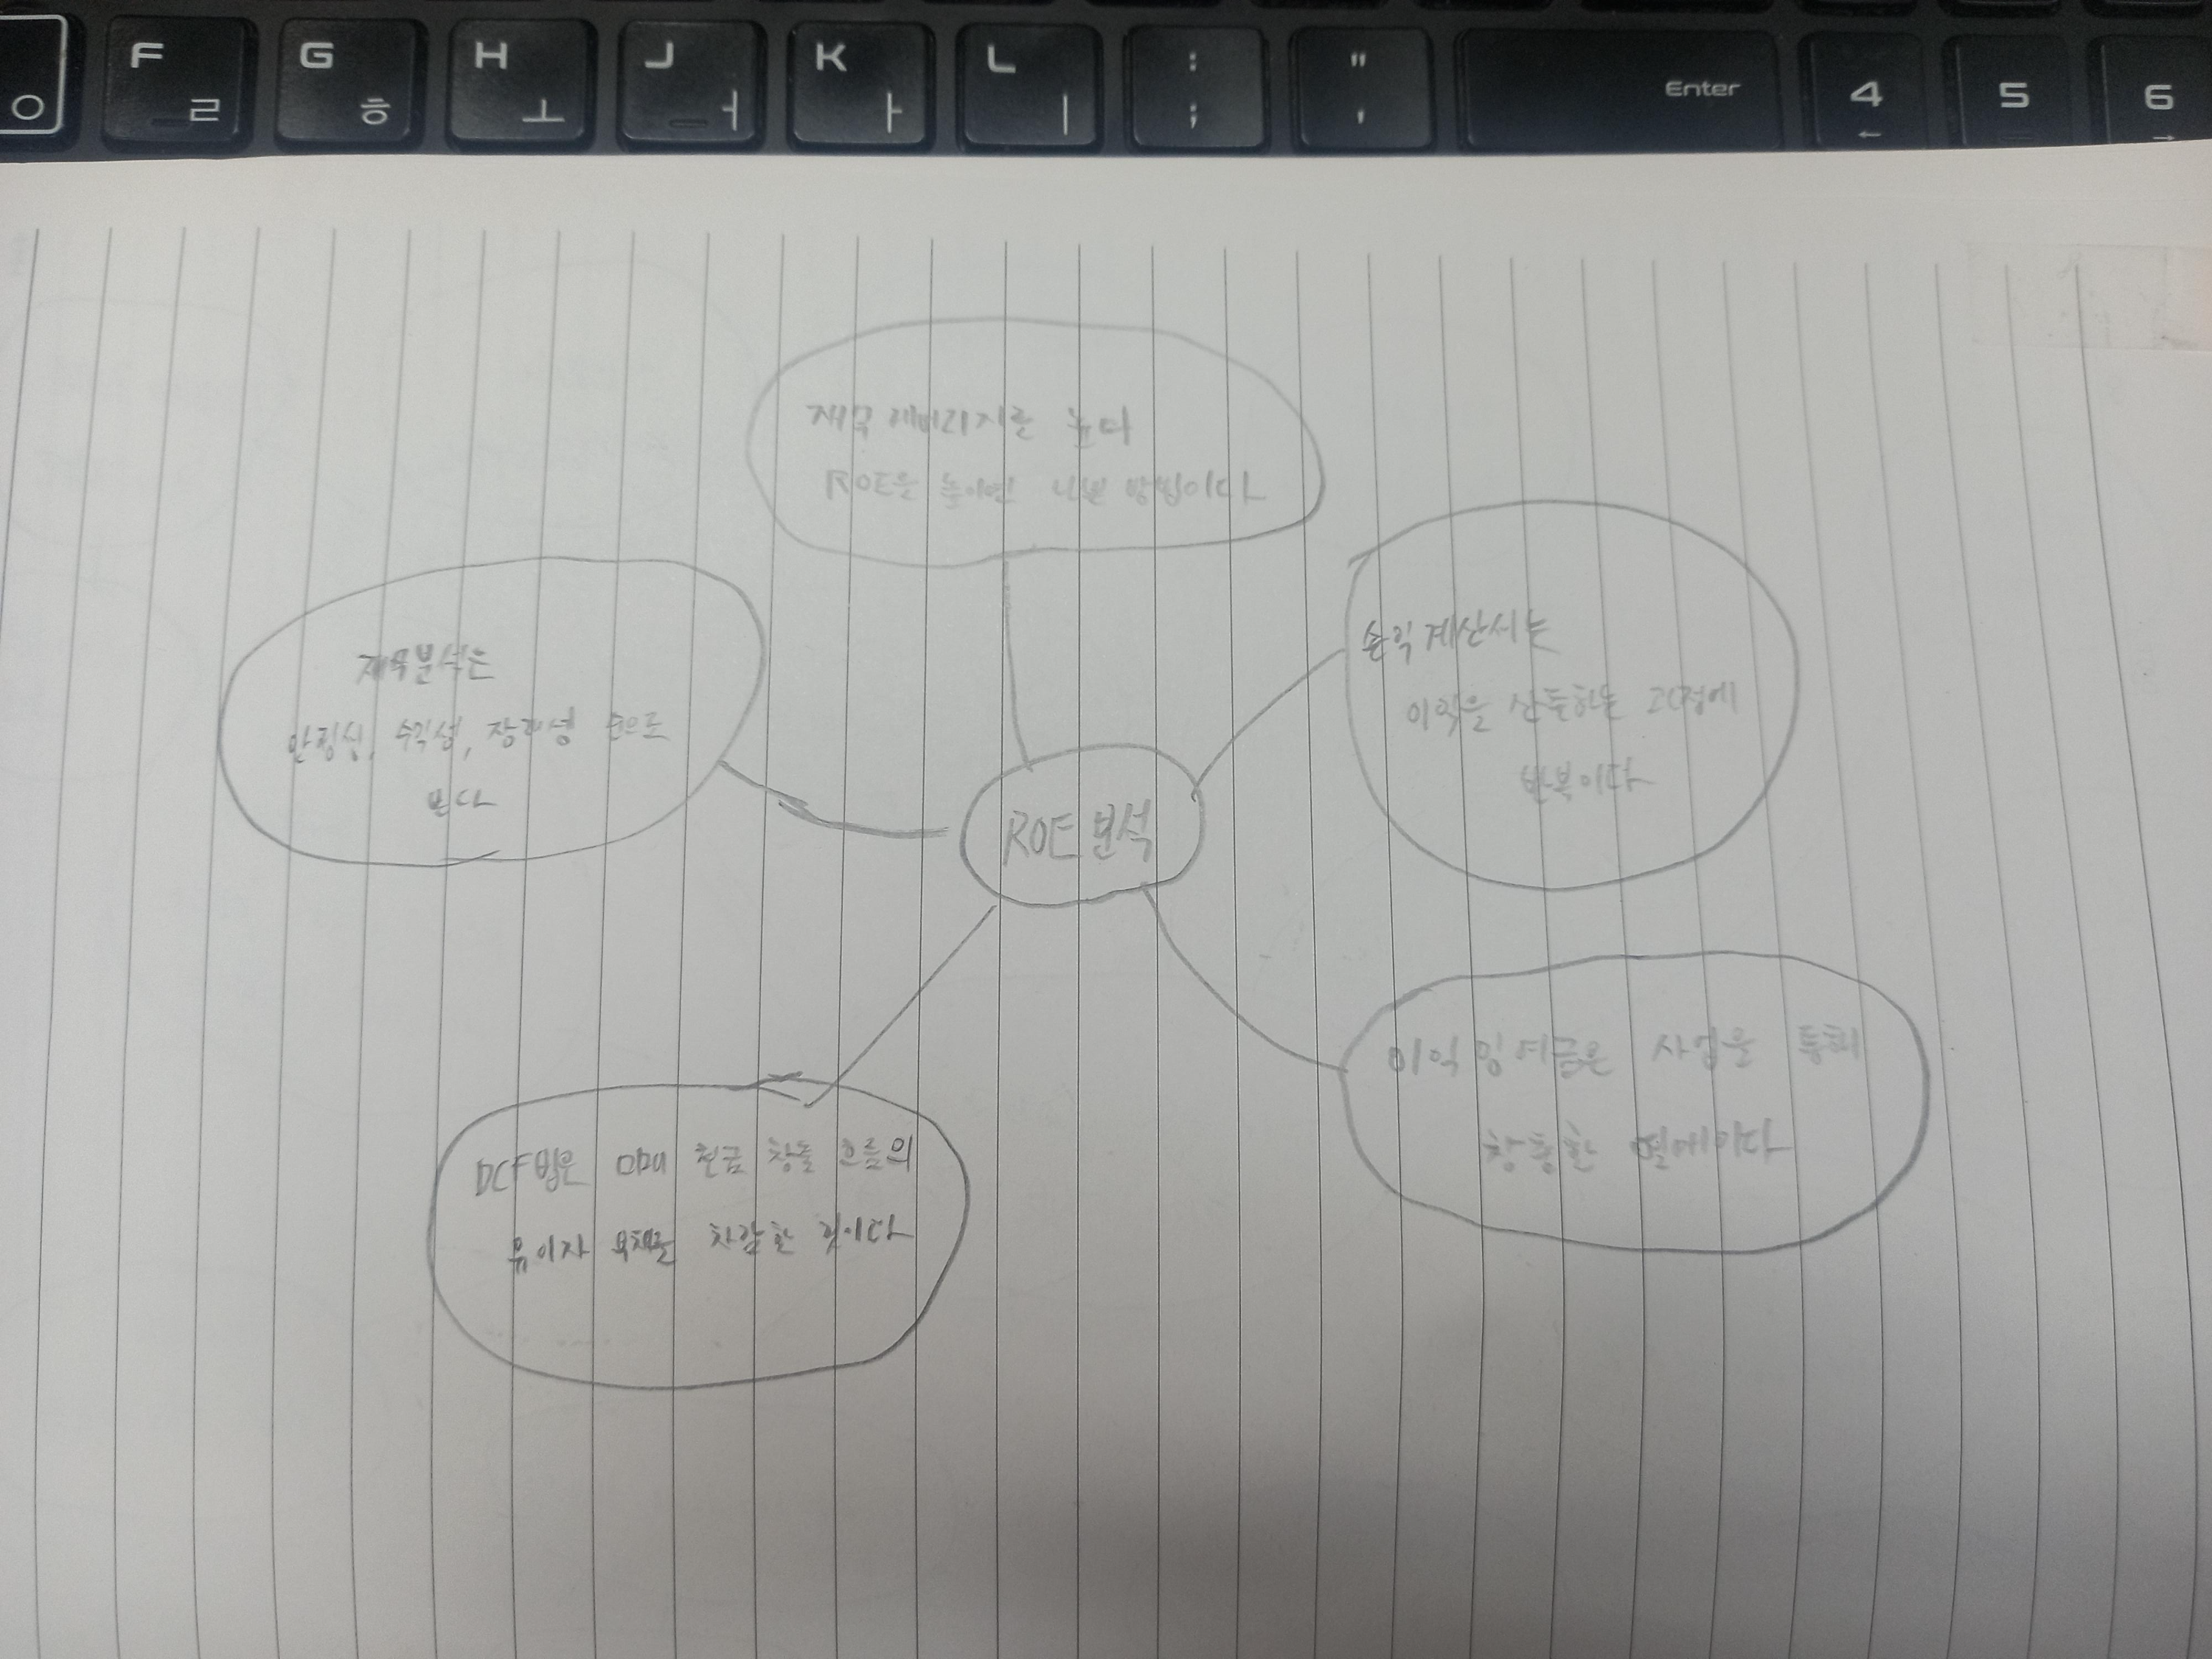 F ㄹ
G ㅎ
H ㅗ
J ㅓ
K ㅏ
L ㅣ
: ;
" '
Enter
4 ←
5
6 →
ㅇ
재무 레버리지를 높
ROE을 높이면 나쁜 방법이다
재무분석은
안정성, 수익성, 장래성 순으로
본다
ROE 분석
손익계산서는
이익을 산출하는 과정에
반복이다
DCF법은 미래 현금 창출 흐름의
유이자 부채를 차감한 것이다
이익잉여금은 사업을 통해
창출한 열매이다